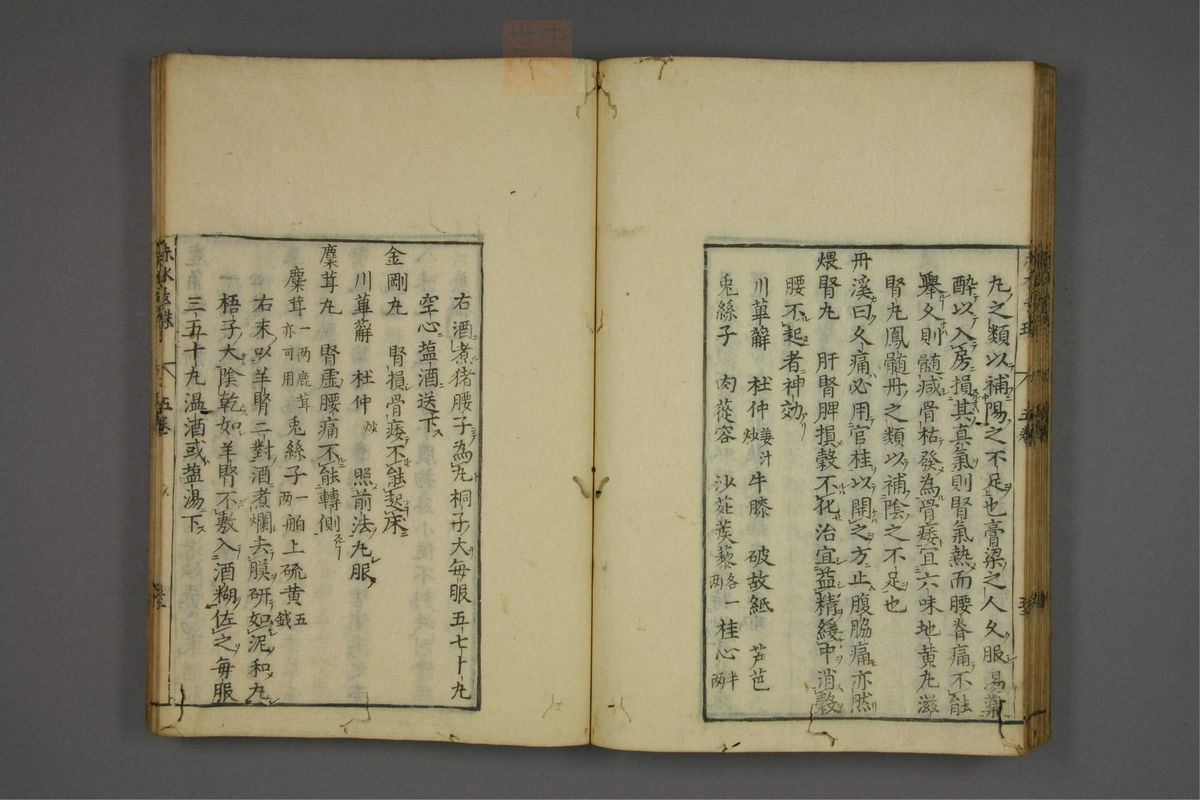 丸之類以補陽之不足也膏粱之人久服湯藥
醉以入房損其真氣則腎氣熱而腰脊痛不能
舉久則髓减骨枯發為骨痿宜六味地黄丸滋
腎丸鳳髓丹之類以補陰之不足也
丹溪曰久痛必用官桂以開之方止腹脇痛亦然
煨腎丸 肝腎脾損穀不化治宜益精緩中消穀
腰不起者神効
川萆薢 杜仲姜汁炒 牛膝 破故紙 芦芭
兎絲子 肉蓯容 沙苑蒺藜各一两 桂心半两
右酒煮猪腰子為丸桐子大毎服五七十丸
空心盐酒送下
金剛丸 腎損骨痿不能起床
川萆薢 杜仲炒 照前法丸服
麋茸丸 腎虚腰痛不能轉側
麋茸一两鹿茸亦可用 兎絲子一两 舶上硫黄五錢
右末以羊腎二對酒煮爛去膜研如泥和丸
梧子大陰乾如羊腎不敷入酒糊佐之毎服
三五十丸温酒或盐湯下